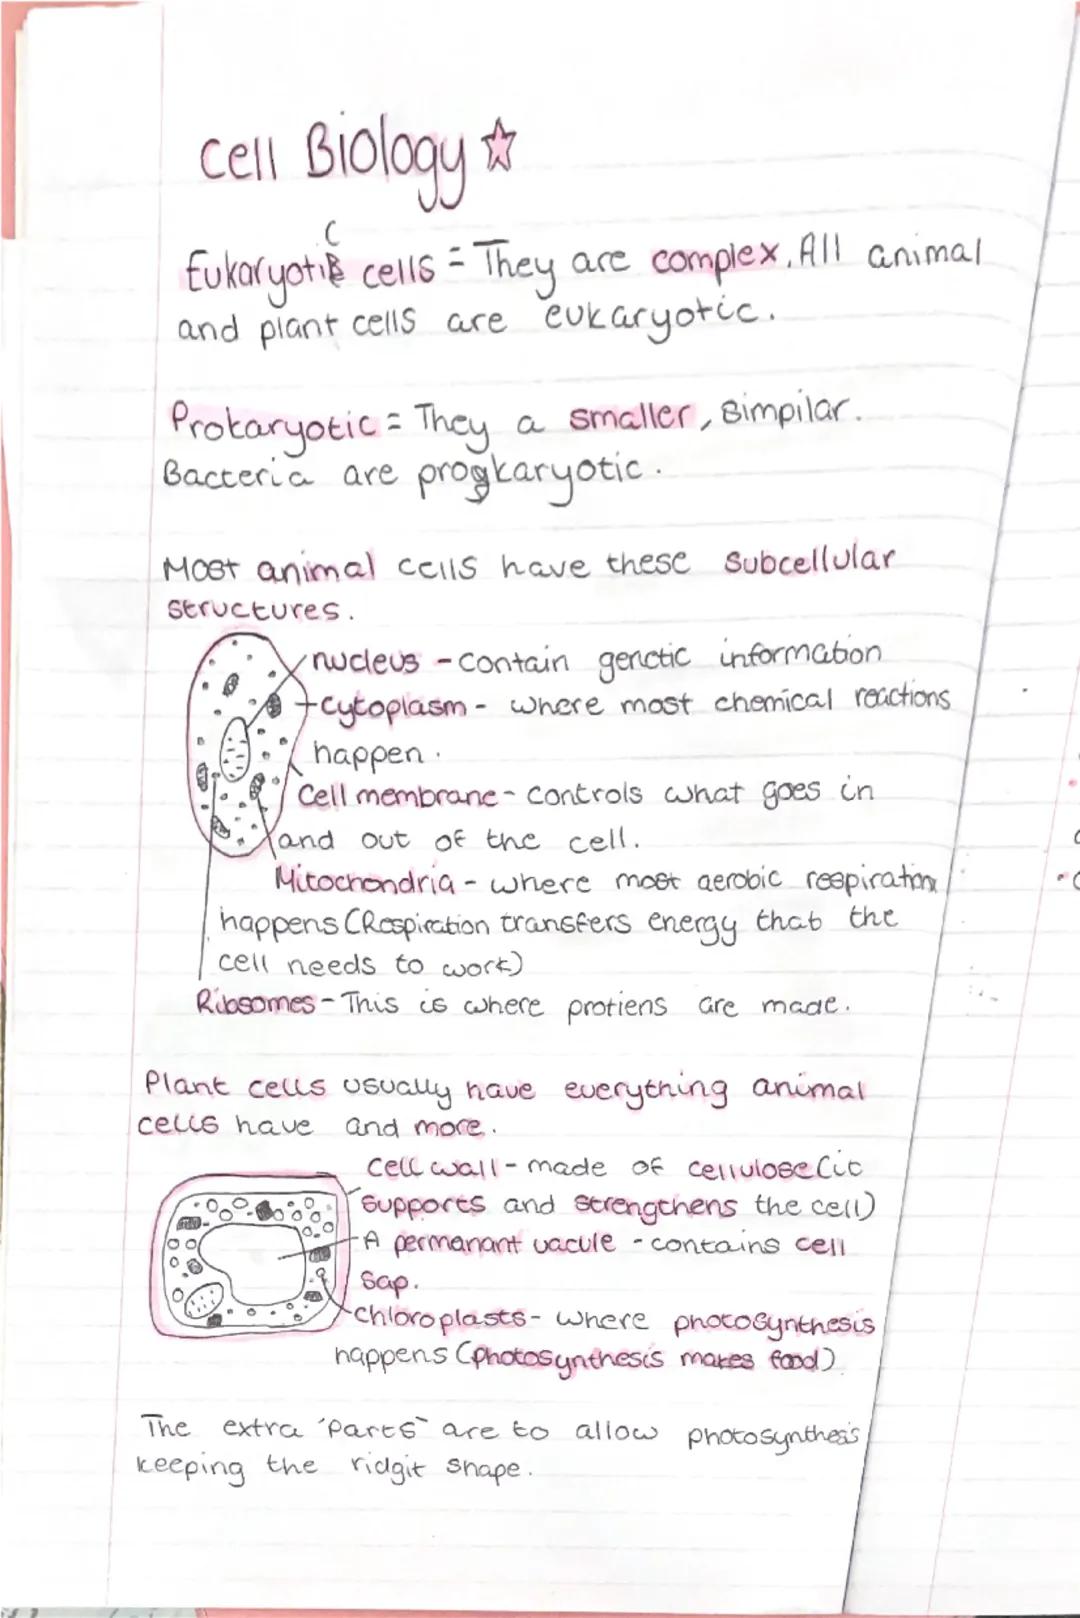 Cell Biology
Eukaryotic cells = They are complex. All animal
and plant cells are eukaryotic.
Prokaryotic = They a smaller, simpilar.
Bacteria are progkaryotic.
Most animal cells have these subcellular
structures.
nucleus - contain genetic information
cytoplasm - where most chemical reactions
happen.
Cell membrane - controls what goes in
and out of the cell.
Mitochondria - where most aerobic respiration
happens (Respiration transfers energy that the
cell needs to work)
Ribsomes - This is where protiens are made.
Plant cells usually have everything animal
cells have and more.
Cell wall - made of cellulose (it
supports and strengthens the cell)
A permanant vacule - contains cell
sap.
Chloroplasts - where photosynthesis
happens (photosynthesis makes food)
The extra 'parts' are to allow photosynthesis
keeping the ridgit shape.